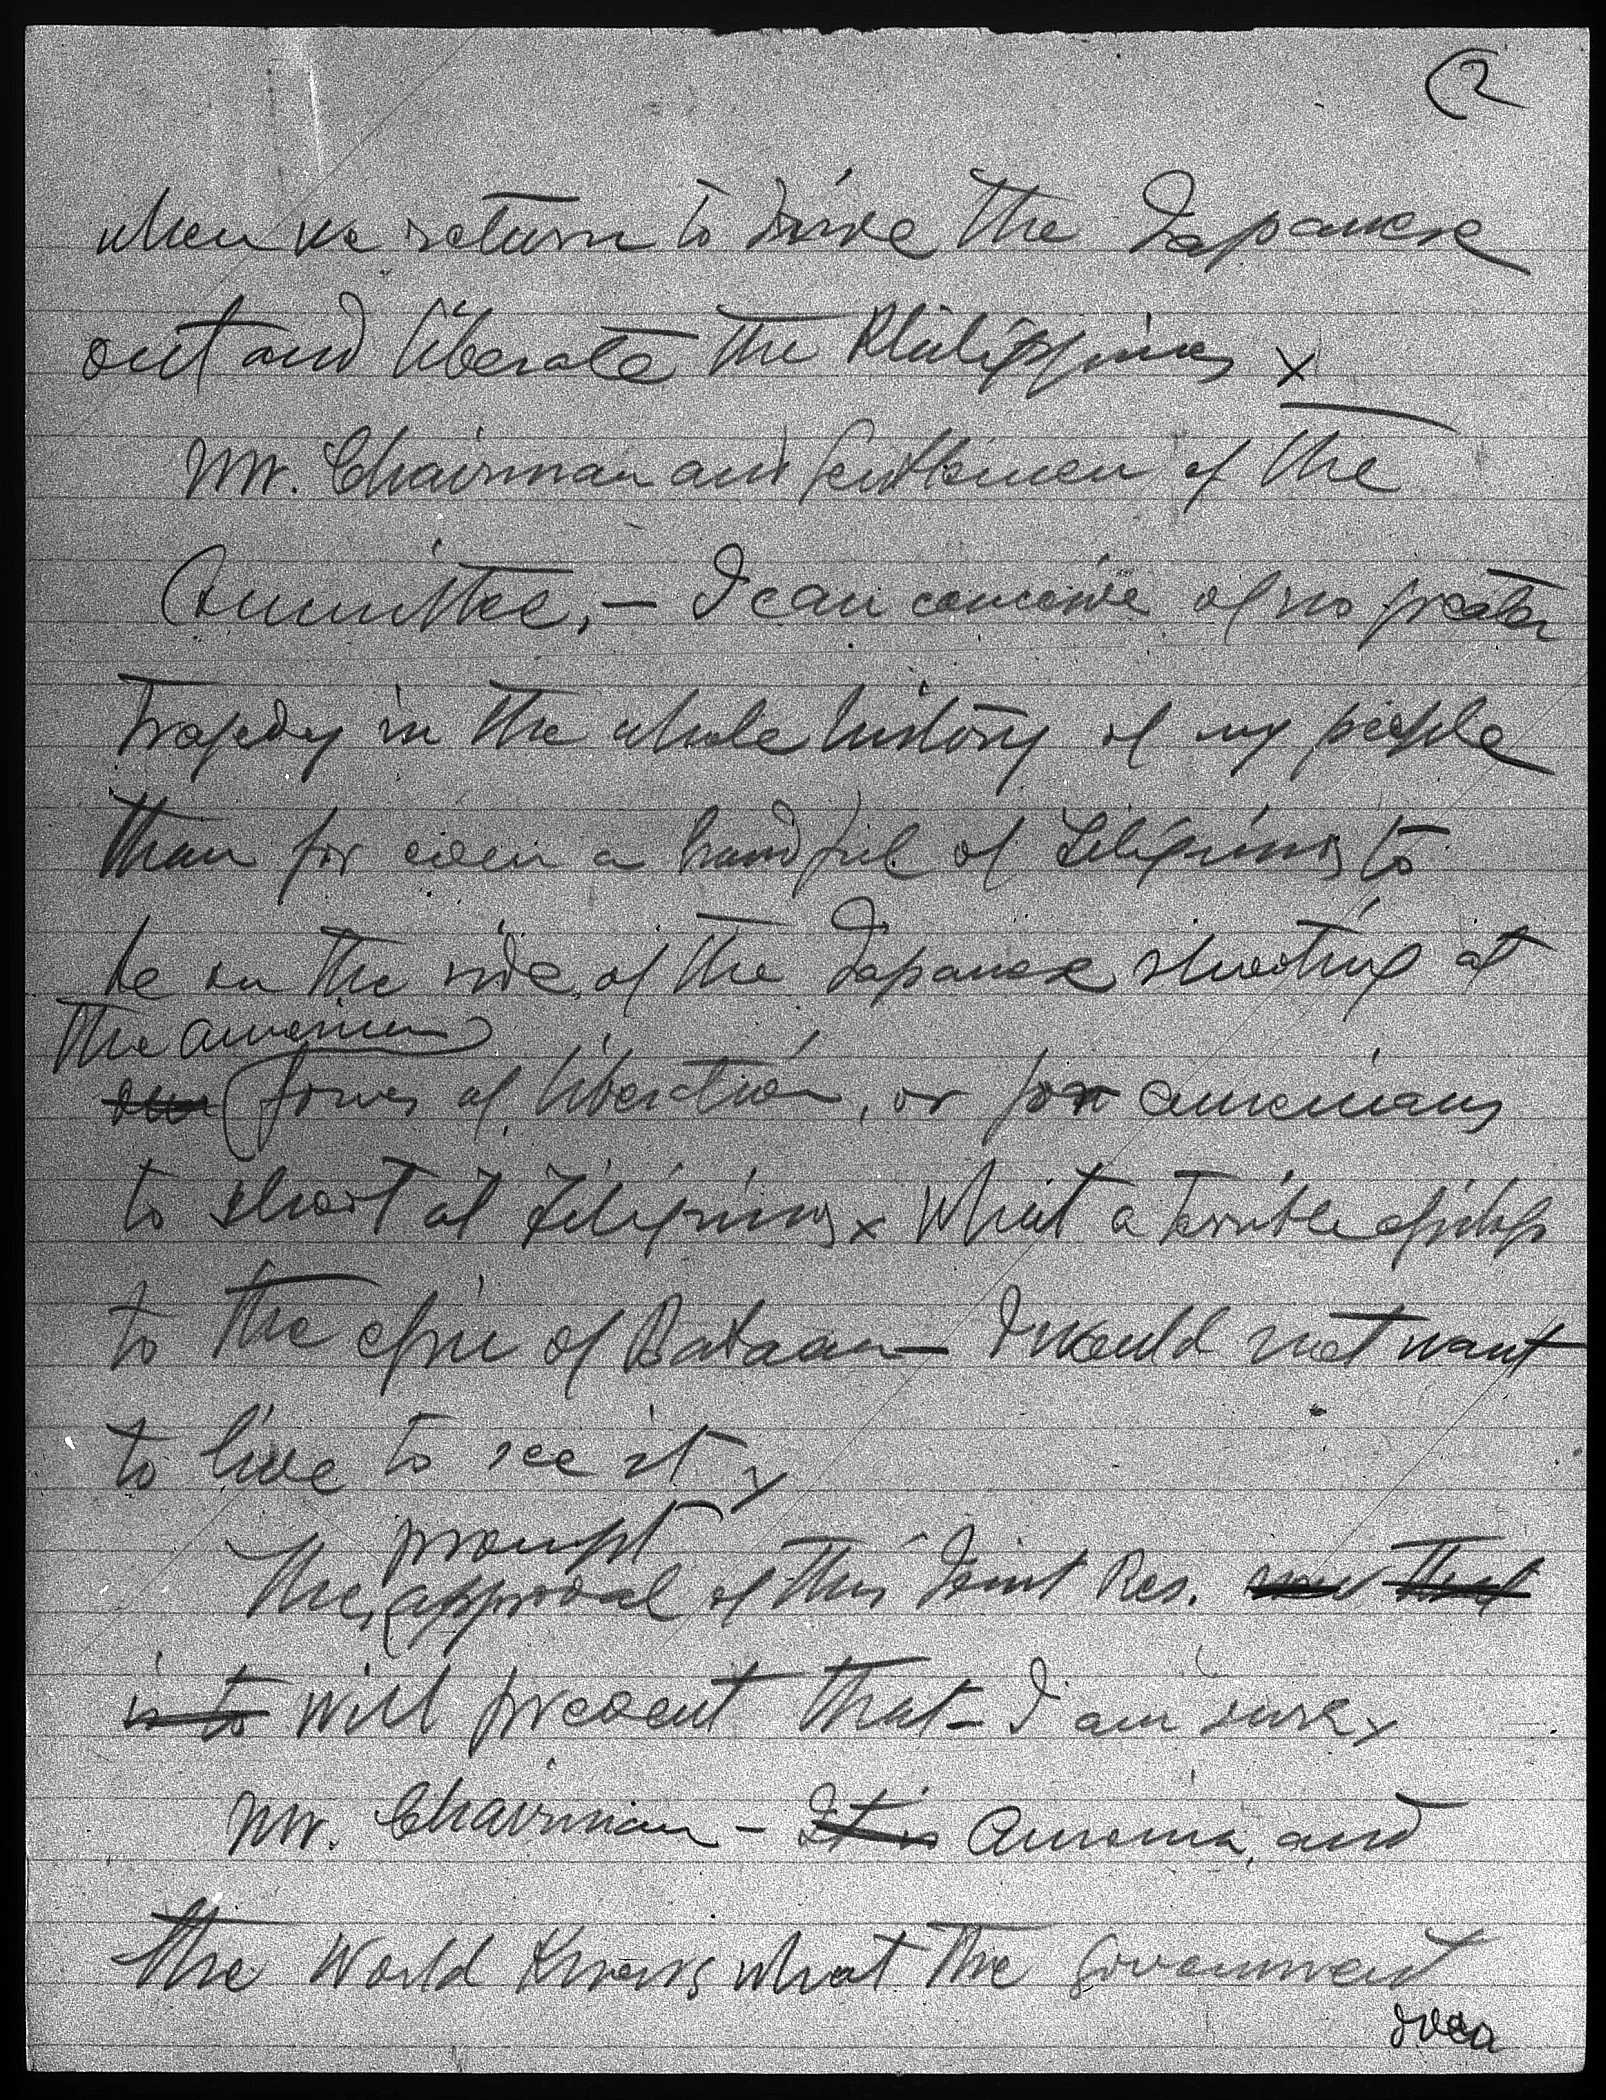 (2
when we return to drive the Japanese
out and liberate the Philippines x
Mr. Chairman and Gentlemen of the
Committee, – I can conceive of no greater
tragedy in the whole history of my people
than for even a handful of Filipinos to
be on the side of the Japanese shooting at
the American
our forces of liberation, or for Americans
to shoot at Filipinos x What a terrible epilog
to the epic of Bataan – I would not want
to live to see it x
prompt
The approval of this Joint Res. now that
is to will prevent that – I am sure x
Mr. Chairman – It is America, and
the World knows what the Government
over